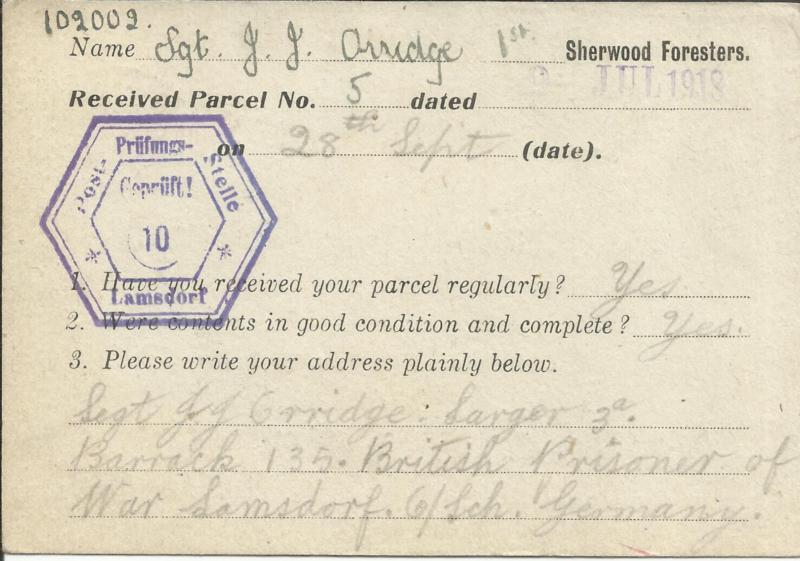 102002.
Name Sgt. J. J. Orridge 1st. Sherwood Foresters.
JUL 1918
Received Parcel No. 5 dated
on 28th Sept (date).
Post- Prüfungs- Stelle
Geprüft!
10
Lamsdorf
1. Have you received your parcel regularly? Yes
2. Were contents in good condition and complete? Yes.
3. Please write your address plainly below.
Segt J J Orridge. Larger 3a.
Barrack 135. British Prisoner of
War Lamsdorf. O/Sch. Germany.